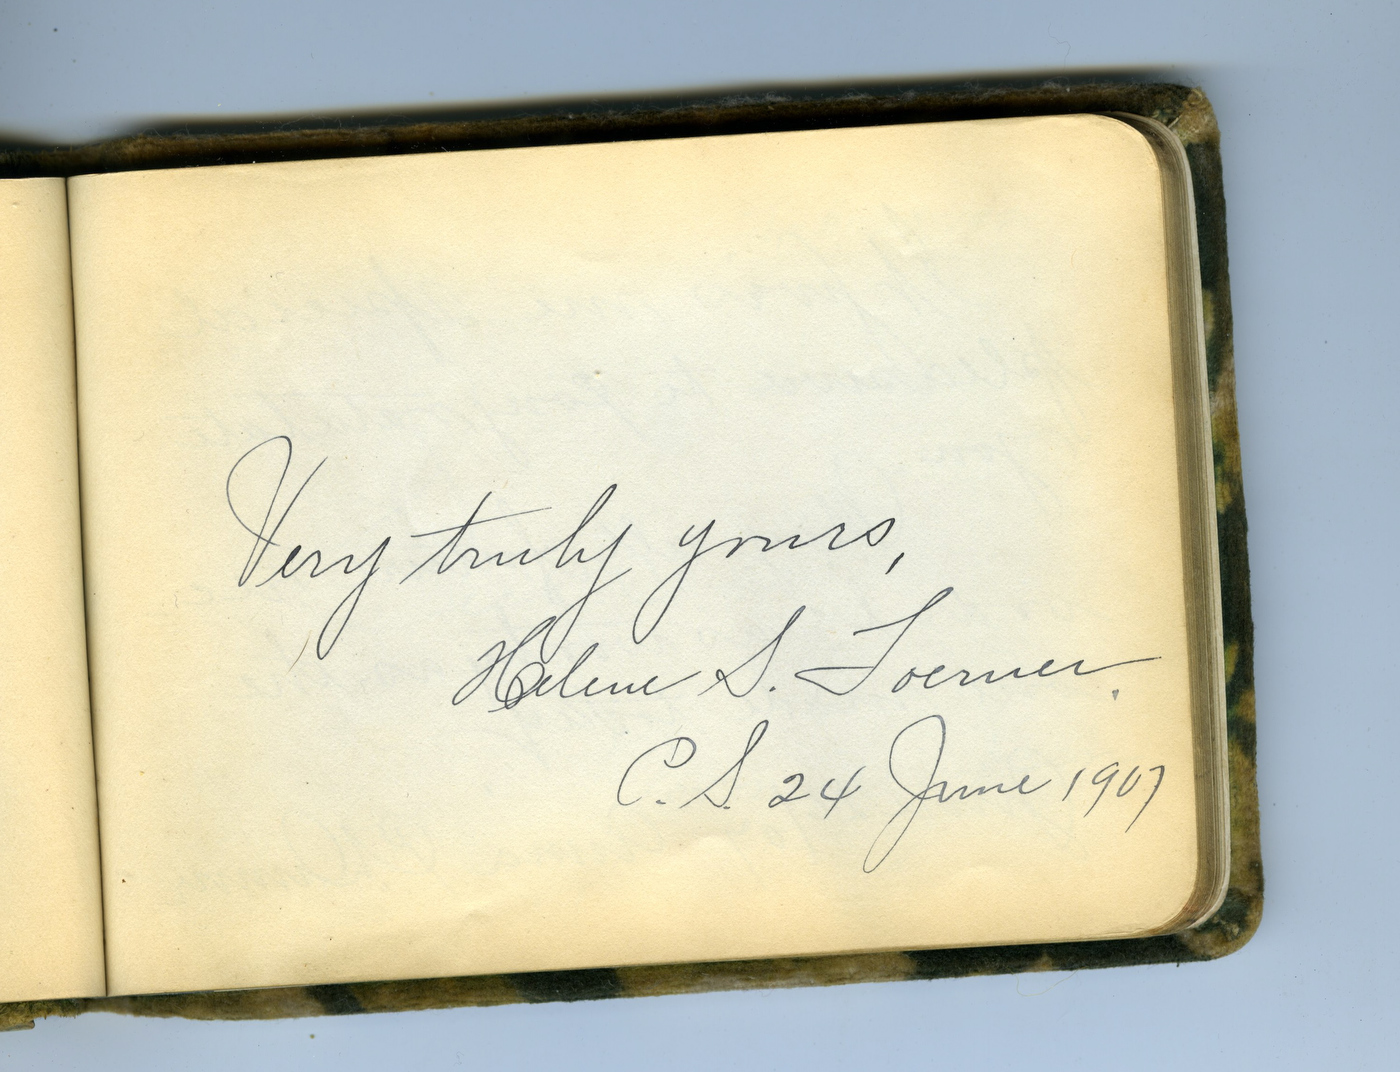 Very truly yours,
Helene S. Toerner.
C. S. 24 June 1907